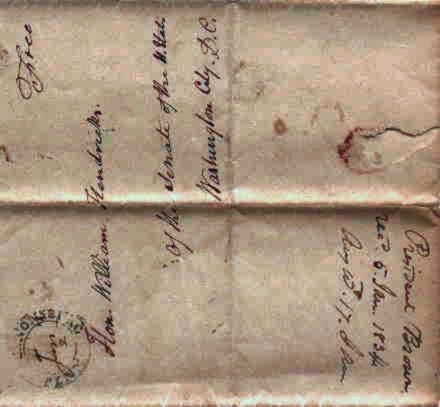 Free
Hon. William Hendricks.
of the Senate of the U. Stat.
Washington City, D.C.
Jan
President Brown
rec. 6 Jan. 1834
17 Jan